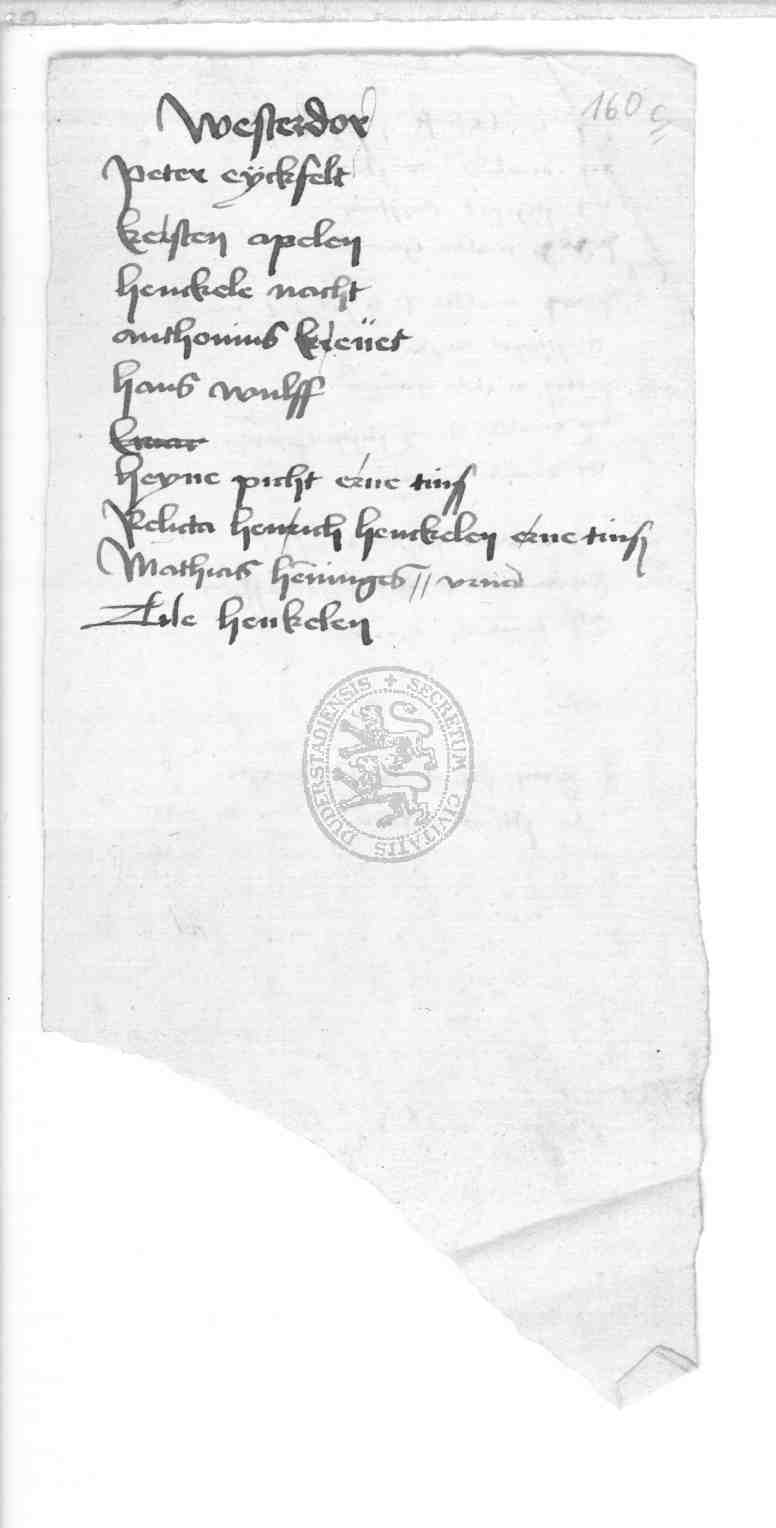 160 c
Westerdor
Peter eÿckfelt
kersten apelen
henckele nacht
anthonius kreüet
hans wulff
heyne picht erne tinß
Relicta henrich henckelen erne tinß
Mathias henninges //
Tile henkelen
SECRETUM CIVITATIS DUDERSTADIENSIS